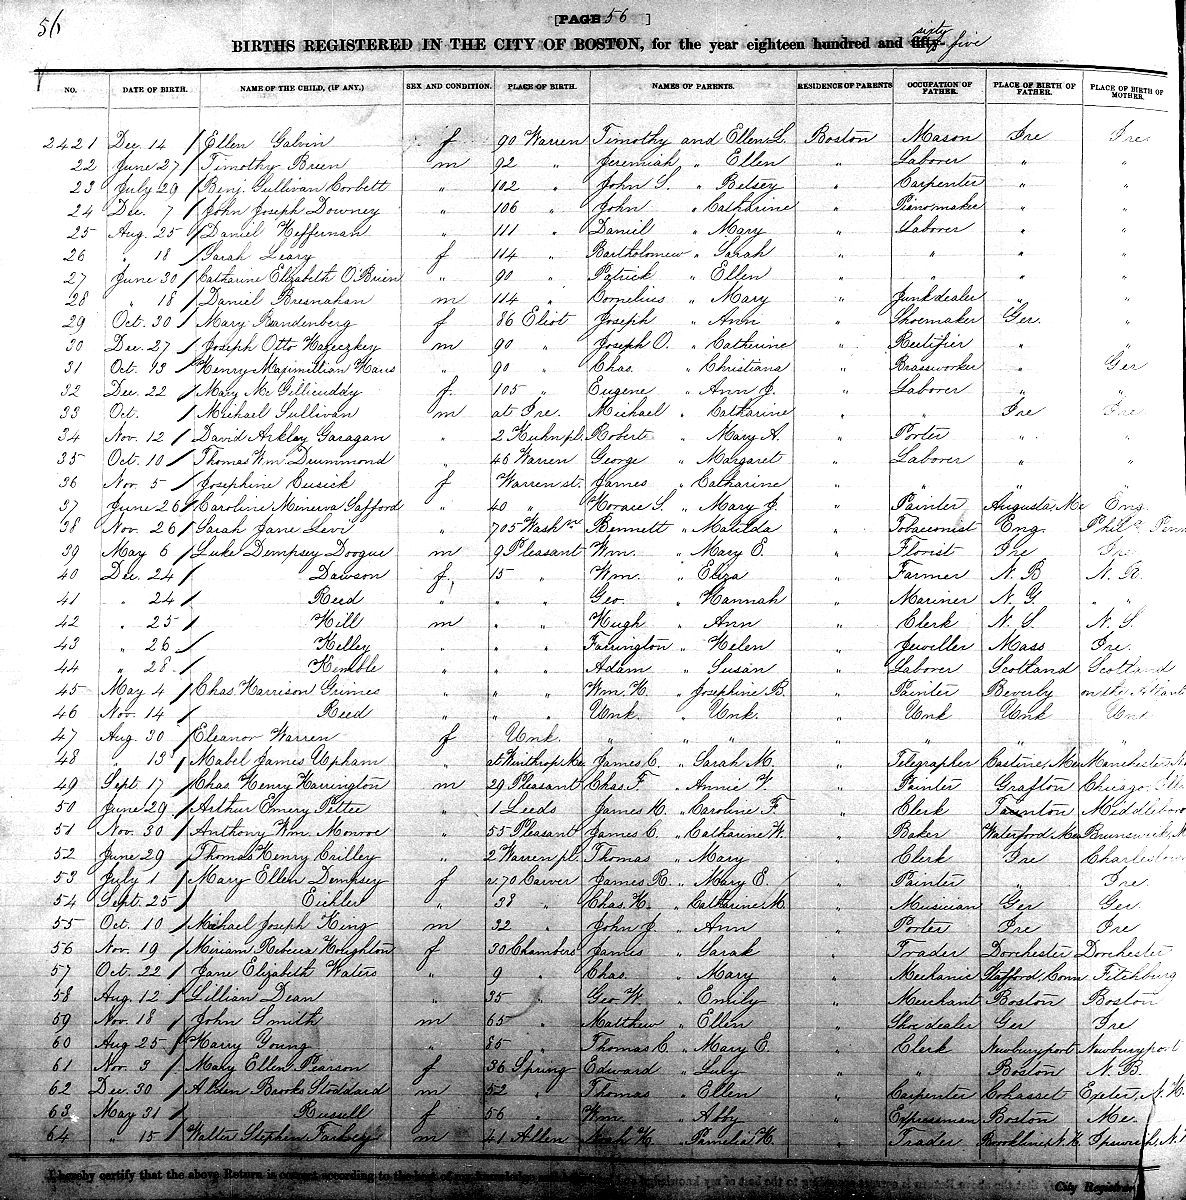 56
[PAGE 56 ]
sixty
BIRTHS REGISTERED IN THE CITY OF BOSTON, for the year eighteen hundred and fifty- five
NO. DATE OF BIRTH. NAME OF THE CHILD, (IF ANY.) SEX AND CONDITION. PLACE OF BIRTH. NAMES OF PARENTS. RESIDENCE OF PARENTS OCCUPATION OF FATHER. PLACE OF BIRTH OF FATHER. PLACE OF BIRTH OF MOTHER.
2421 Dec. 14 / Ellen Galvin f 90 Warren Timothy and Ellen L. Boston Mason Ire Ire
22 June 27 / Timothy Brien m 92 " Jeremiah " Ellen " Laborer " "
23 July 29 / Benj. Sullivan Corbett " 102 " John S. " Betsey " Carpenter " "
24 Dec. 7 / John Joseph Downey " 106 " John " Catharine " Pianomaker " "
25 Aug. 25 / Daniel Heffernan " 111 " Daniel " Mary " Laborer " "
26 " 18 / Sarah Leary f 114 " Bartholomew " Sarah " " " "
27 June 30 / Catharine Elizabeth O'Brien " 90 " Patrick " Ellen " " " "
28 " 18 / Daniel Bresnahan m 114 " Cornelius " Mary " Junkdealer " "
29 Oct. 30 / Mary Brandenberg f 86 Eliot Joseph " Ann " Shoemaker Ger. "
30 Dec. 27 / Joseph Otto m 90 " Joseph O. " Catherine " Rectifier " "
31 Oct. 13 / Henry Maximillian " 90 " Chas. " Christiana " Brassworker " Ger
32 Dec. 22 / Mary McGillicuddy f. 105 " Eugene " Ann J. " Laborer " "
33 Oct. / Michael Sullivan m at Ire. Michael " Catharine " " Ire Ire
34 Nov. 12 / David Garagan " 2 Kuhn pl. Robert " Mary A. " Porter " "
35 Oct. 10 / Thomas Wm. Drummond " 46 Warren George " Margaret " Laborer " "
36 Nov. 5 / Josephine Cusick f Warren st. James " Catharine " " " "
37 June 26 / Caroline Minerva Safford " 40 " Horace S. " Mary J. " Painter Augusta, Me Eng.
38 Nov. 26 / Sarah Jane Levi " 705 Wash. Bennett " Matilda " Tobacconist Eng. Phil. Penn
39 May 6 / Luke Dempsey Doogue m 9 Pleasant Wm. " Mary E. " Florist Ire Ire
40 Dec. 24 / Dawson f, 15 " Wm. " Eliza " Farmer N. B N. B.
41 " 24 / Reed " " " Geo. " Hannah " Mariner N. " "
42 " 25 / Hill m " " Hugh " Ann " Clerk N. S N. S
43 " 26 / Kelley " " " Farrington " Helen " Jeweller Mass Ire.
44 " 28 / Kimble " " " Adam " Susan " Laborer Scotland Scotland
45 May 4 / Chas. Harrison Grimes " " " Wm. H. " Josephine B. " Painter Beverly on the
46 Nov. 14 / Reed " " " Unk. " Unk. " Unk Unk Unk
47 Aug. 30 / Eleanor Warren f Unk. " " " " " " "
48 " 13 / Mabel James Upham " at Winthrop Me James C. " Sarah M. " Telegrapher Castine, Me Manchester
49 Sept. 17 / Chas. Henry Harrington m 29 Pleasant Chas. F. " Annie " Painter Grafton Chicago
50 June 29 / Arthur Emery Pettee " 1 Leeds James H. " Caroline F " Clerk Taunton Middleboro
51 Nov. 30 / Anthony Wm. Monroe " 55 Pleasant James C. " Catharine W. " Baker Waterford, Me Brunswick,
52 June 29 / Thomas Henry Crilley " 2 Warren pl. Thomas " Mary " Clerk Ire Charlestown
53 July 1 / Mary Ellen Dempsey f r. 70 Carver James R. " Mary E. " Painter " Ire.
54 Sept. 25 / Eichler " 38 " Chas. H. " Catharine M. " Musician Ger Ger.
55 Oct. 10 / Michael Joseph King m 32 " John J. " Ann " Porter Ire Ire
56 Nov. 19 / Miriam Rebecca Houghton f 30 Chambers James " Sarah " Trader Dorchester Dorchester
57 Oct. 22 / Jane Elizabeth Waters " 9 " Chas. " Mary " Mechanic Stafford, Conn Fitchburg
58 Aug. 12 / Lillian Dean " 35 " Geo W. " Emily " Merchant Boston Boston
59 Nov. 18 / John Smith m 65 " Matthew " Ellen " Shoe dealer Ger Ire
60 Aug 25 / Harry Young " 85 " Thomas C. " Mary E. " Clerk Newburyport Newburyport
61 Nov. 3 / Mary Ellen Pearson f 36 Spring Edward " Lucy " " Boston N. B.
62 Dec. 30 / Alden Brooks Stoddard m 52 " Thomas " Ellen " Carpenter Cohasset Exeter, N. H.
63 May 31 / Russell f 56 " Wm. " Abby " Expressman Boston Me.
64 " 15 / Walter Stephen m 41 Allen Noah H. " Pamelia H. " Trader Brookline, N. H. Ipswich, N.
I hereby certify that the above Return is correct according to the best of my knowledge and belief.
City Registrar